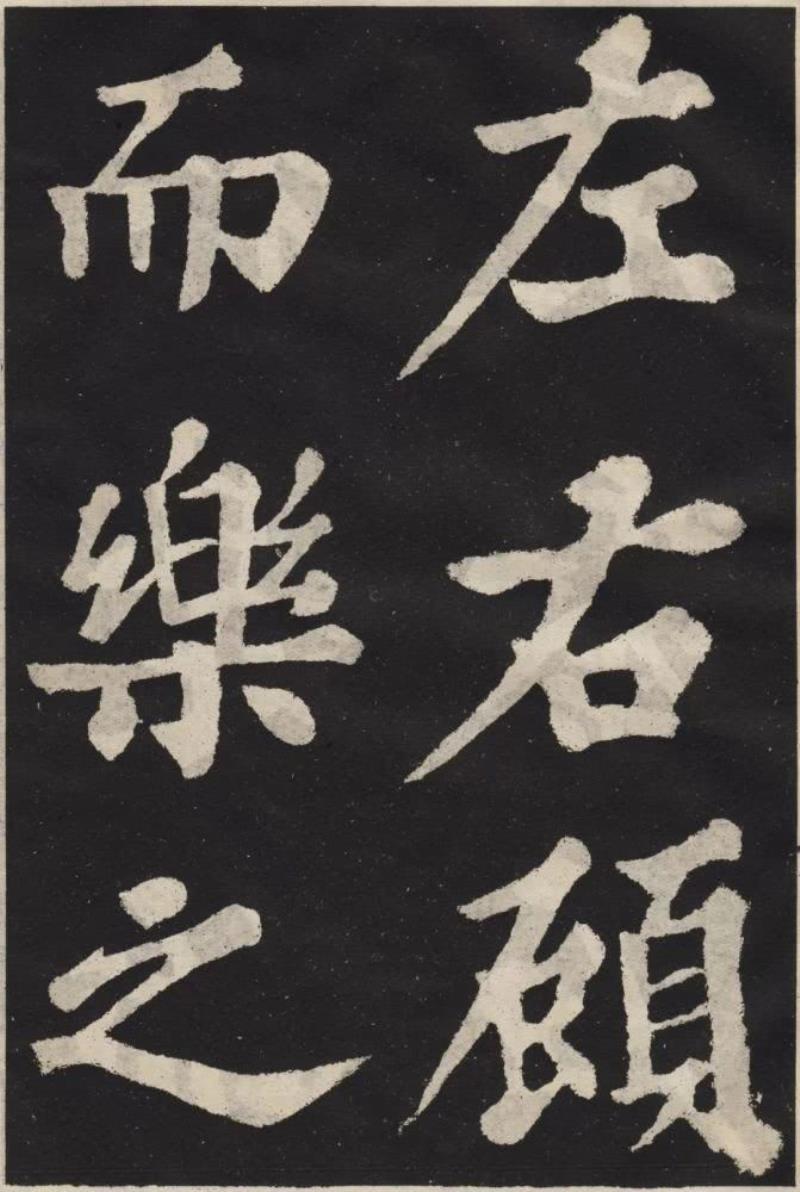 左右顧
而樂之